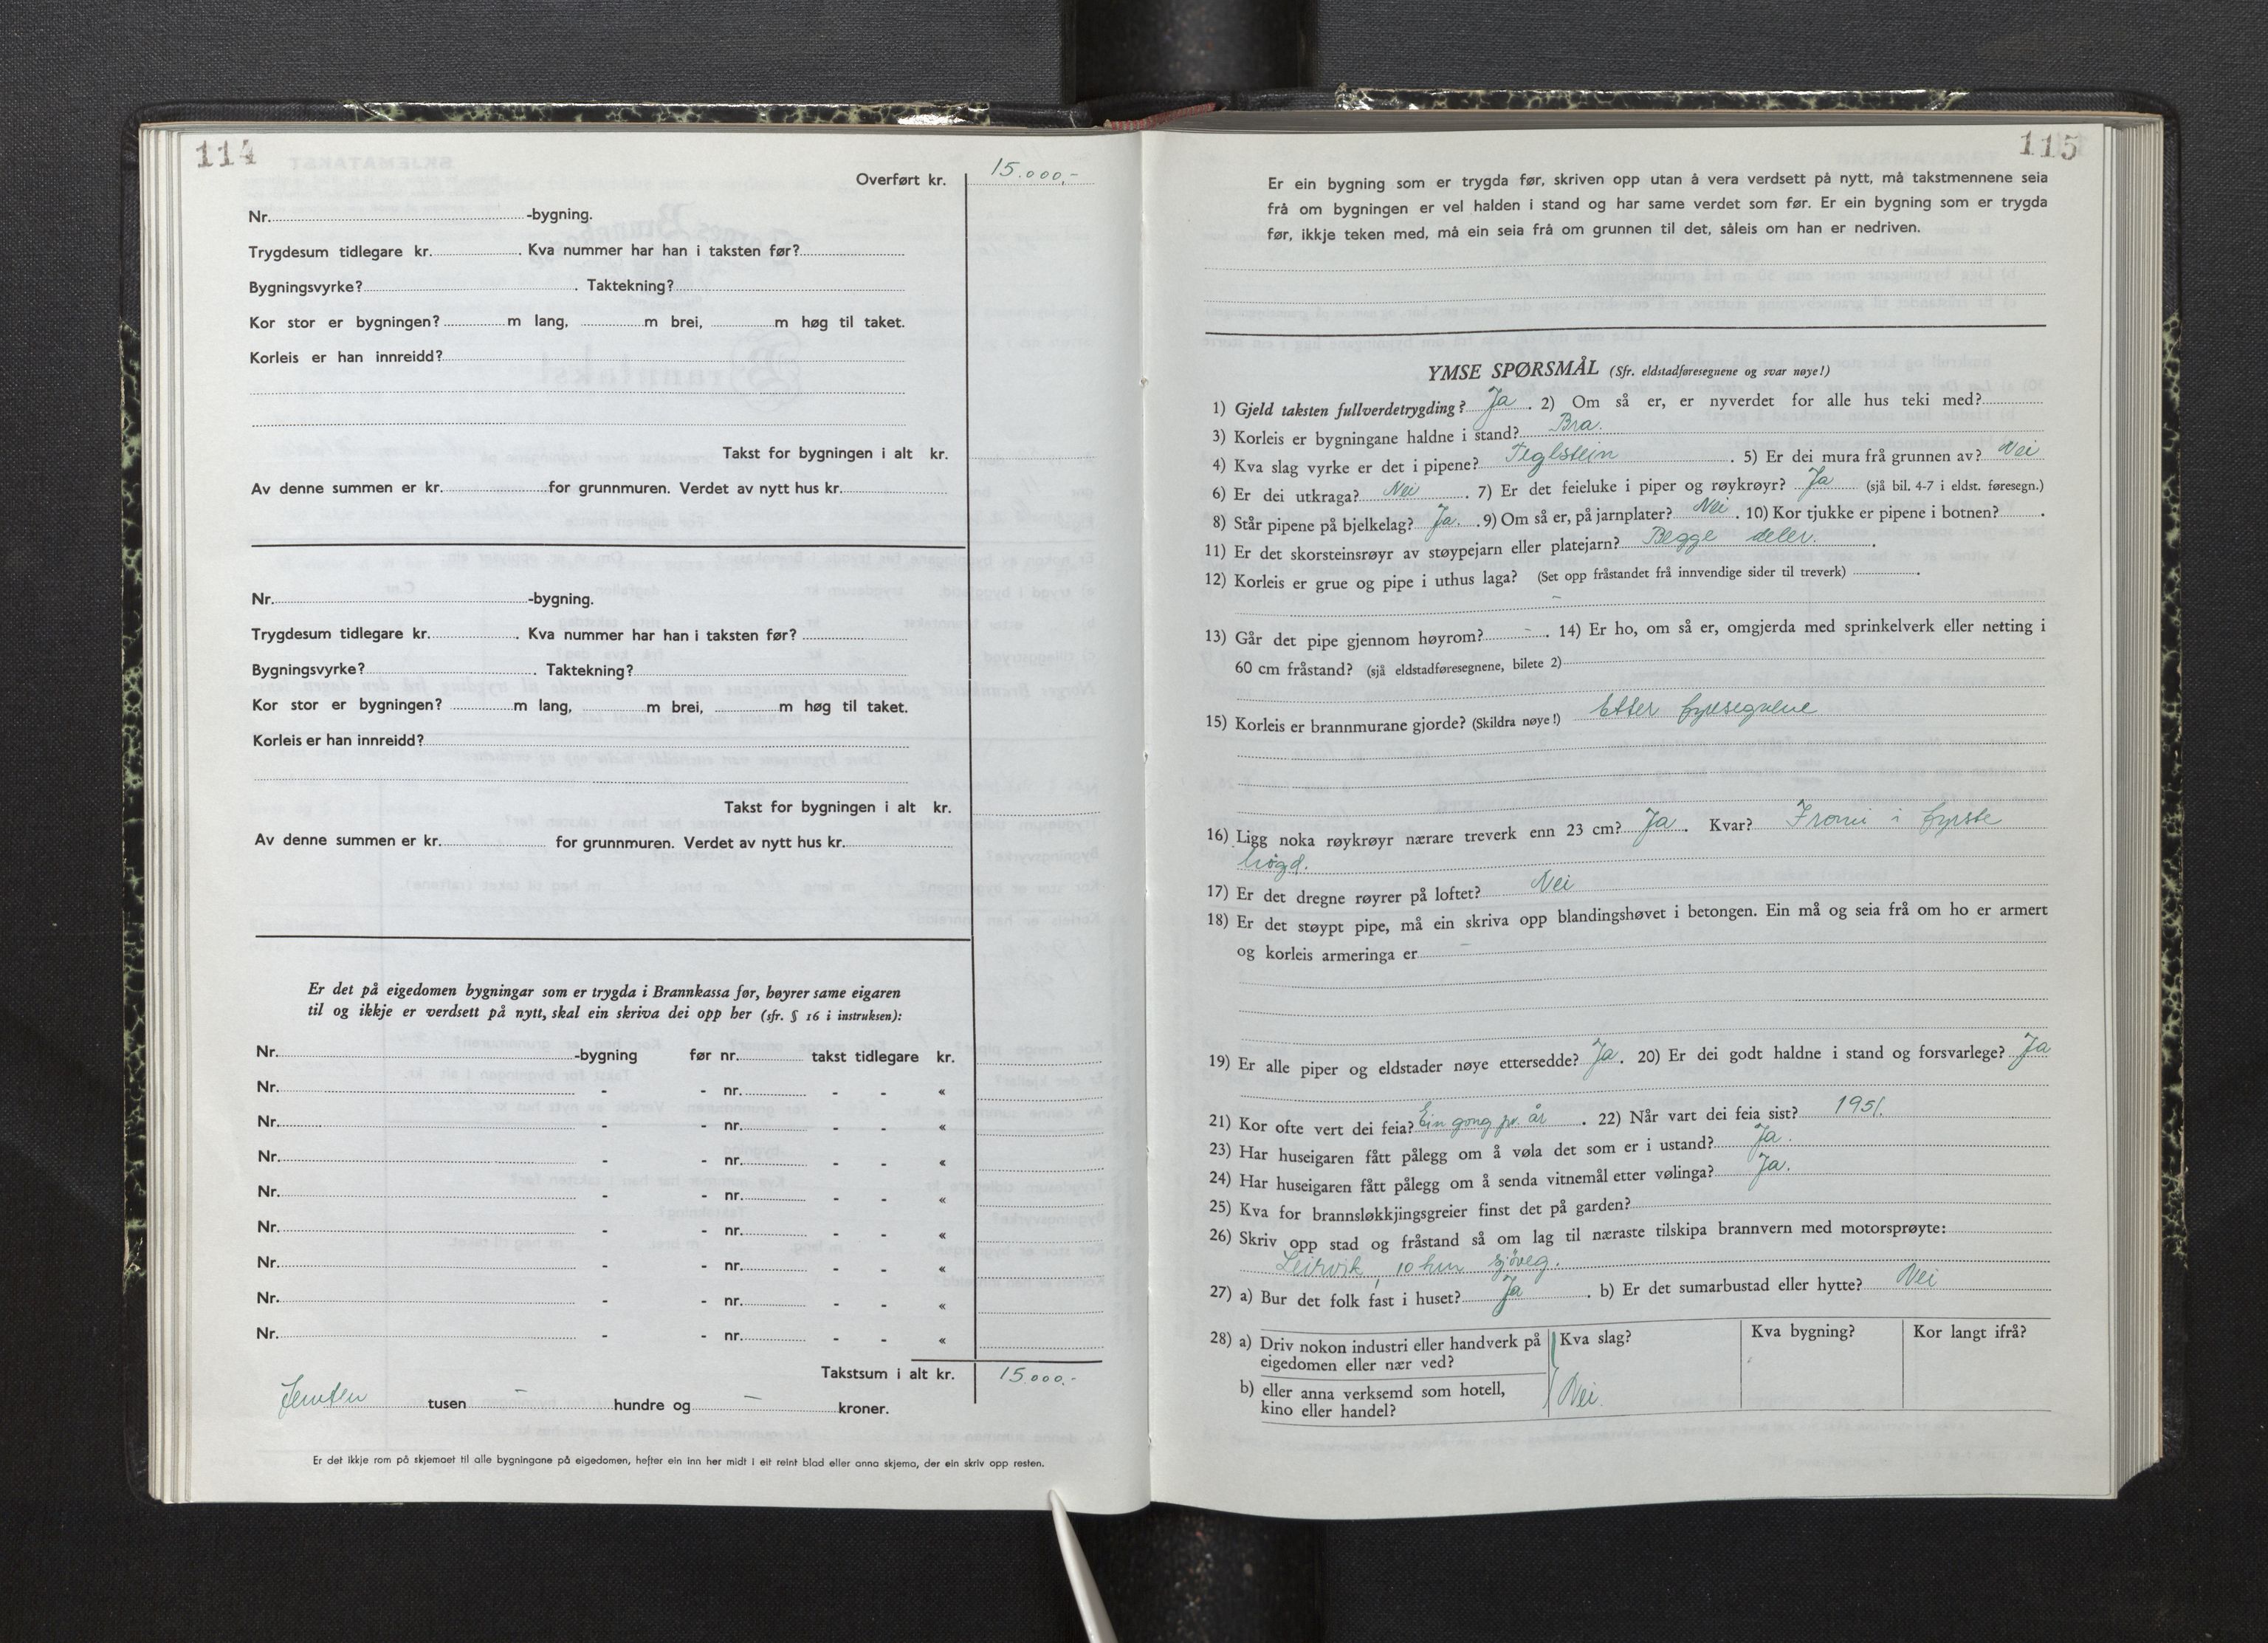 114
Overført kr. 15.000,-
Nr. -bygning.
Trygdesum tidlegare kr. . Kva nummer har han i taksten før?
Bygningsvyrke? . Taktekning?
Kor stor er bygningen? m lang, m brei, m høg til taket.
Korleis er han innreidd?
Takst for bygningen i alt kr.
Av denne summen er kr. for grunnmuren. Verdet av nytt hus kr.
Nr. -bygning.
Trygdesum tidlegare kr. . Kva nummer har han i taksten før?
Bygningsvyrke? . Taktekning?
Kor stor er bygningen? m lang, m brei, m høg til taket.
Korleis er han innreidd?
Takst for bygningen i alt kr.
Av denne summen er kr. for grunnmuren. Verdet av nytt hus kr.
Er det på eigedomen bygningar som er trygda i Brannkassa før, høyrer same eigaren
til og ikkje er verdsett på nytt, skal ein skriva dei opp her (sfr. § 16 i instruksen):
Nr. -bygning før nr. takst tidlegare kr.
Nr. - - nr. - - «
Nr. - - nr. - - «
Nr. - - nr. - - «
Nr. - - nr. - - «
Nr. - - nr. - - «
Nr. - - nr. - - «
Nr. - - nr. - - «
Nr. - - nr. - - «
Takstsum i alt kr. 15.000.-
Femten tusen - hundre og - kroner.
Er det ikkje rom på skjemaet til alle bygningane på eigedomen, hefter ein inn her midt i eit reint blad eller anna skjema, der ein skriv opp resten.
115
Er ein bygning som er trygda før, skriven opp utan å vera verdsett på nytt, må takstmennene seia
frå om bygningen er vel halden i stand og har same verdet som før. Er ein bygning som er trygda
før, ikkje teken med, må ein seia frå om grunnen til det, såleis om han er nedriven.
YMSE SPØRSMÅL (Sfr. eldstadføresegnene og svar nøye!)
1) Gjeld taksten fullverdetrygding? Ja . 2) Om så er, er nyverdet for alle hus teki med?
3) Korleis er bygningane haldne i stand? Bra.
4) Kva slag vyrke er det i pipene? Teglstein . 5) Er dei mura frå grunnen av? Nei
6) Er dei utkraga? Nei . 7) Er det feieluke i piper og røykrøyr? Ja (sjå bil. 4-7 i eldst. føresegn.)
8) Står pipene på bjelkelag? Ja. . 9) Om så er, på jarnplater? Nei . 10) Kor tjukke er pipene i botnen? .
11) Er det skorsteinsrøyr av støypejarn eller platejarn? Begge deler. .
12) Korleis er grue og pipe i uthus laga? (Set opp fråstandet frå innvendige sider til treverk) .
-
13) Går det pipe gjennom høyrom? - . 14) Er ho, om så er, omgjerda med sprinkelverk eller netting i
60 cm fråstand? (sjå eldstadføresegnene, bilete 2)
15) Korleis er brannmurane gjorde? (Skildra nøye!) Etter fyresegnene
16) Ligg noka røykrøyr nærare treverk enn 23 cm? Ja . Kvar? Fromi i fyrste
høgd.
17) Er det dregne røyrer på loftet? Nei
18) Er det støypt pipe, må ein skriva opp blandingshøvet i betongen. Ein må og seia frå om ho er armert
og korleis armeringa er -
19) Er alle piper og eldstader nøye ettersedde? Ja . 20) Er dei godt haldne i stand og forsvarlege? Ja
21) Kor ofte vert dei feia? Ein gong pr. år . 22) Når vart dei feia sist? 1951.
23) Har huseigaren fått pålegg om å vøla det som er i ustand? Ja.
24) Har huseigaren fått pålegg om å senda vitnemål etter vølinga? Ja.
25) Kva for brannsløkkjingsgreier finst det på garden?
26) Skriv opp stad og fråstand så om lag til næraste tilskipa brannvern med motorsprøyte:
Leirvik, 10 km sjøveg.
27) a) Bur det folk fast i huset? Ja . b) Er det sumarbustad eller hytte? Nei
28) a) Driv nokon industri eller handverk på Kva slag? Kva bygning? Kor langt ifrå?
eigedomen eller nær ved?
b) eller anna verksemd som hotell, Nei.
kino eller handel?